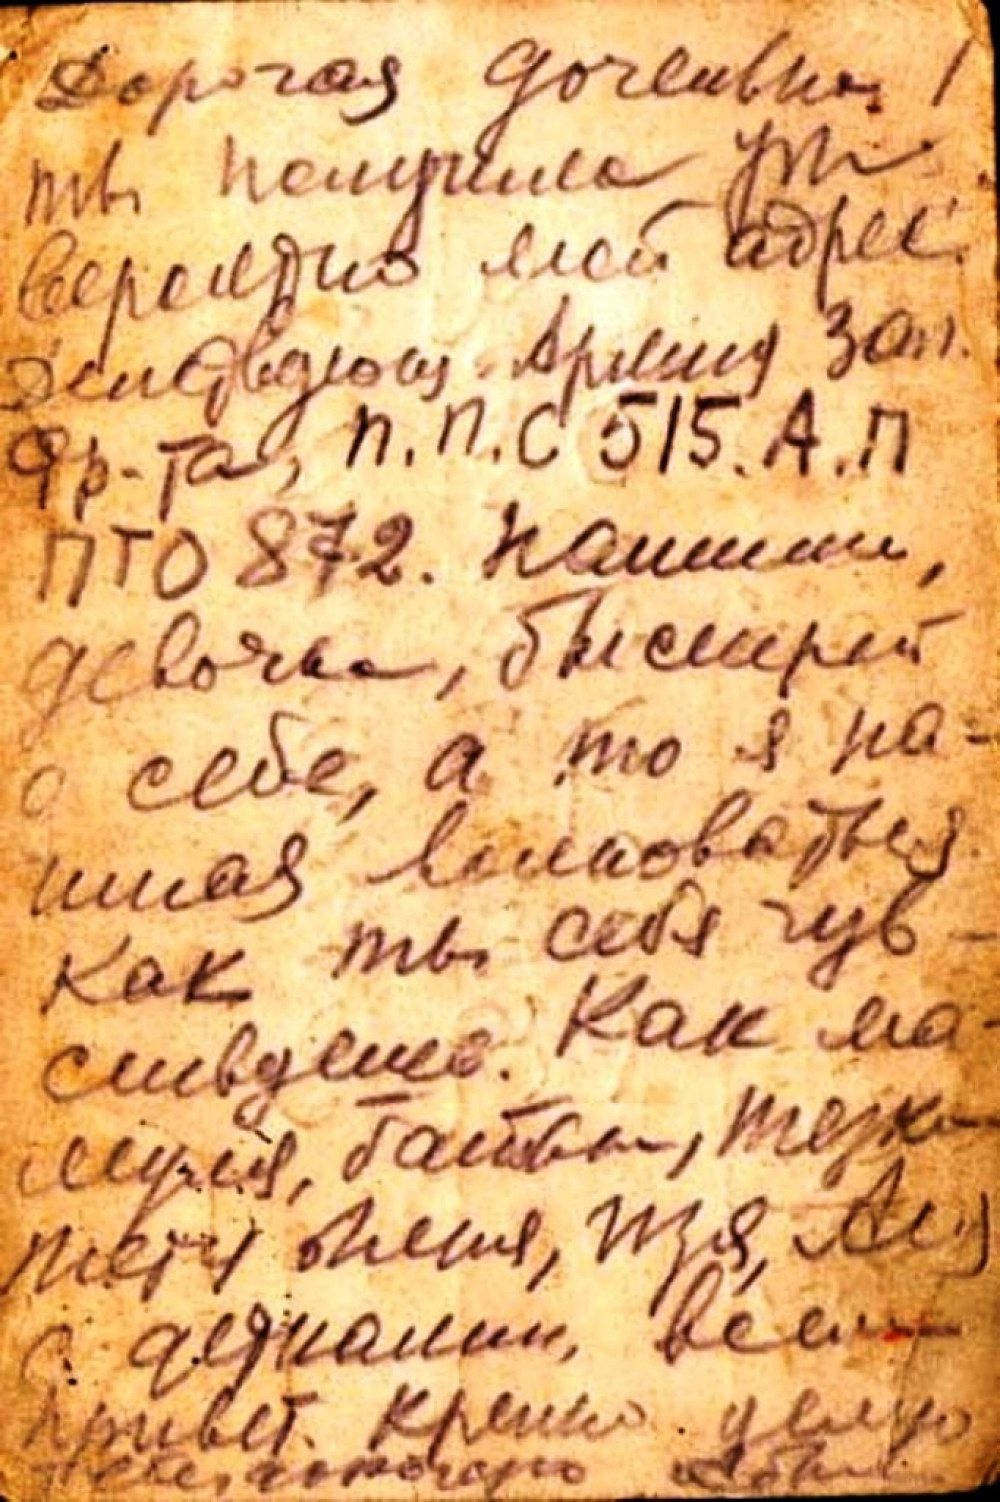 Дорогая доченька!
ты получила уж
вероятно мой адрес.
Действующ. Армия Зап.
Фр-та, П.П.С 515. А.П
ПТО 872. Напиши,
девочка, быстрей
о себе, а то я на-
чинаю волноваться.
Как ты себя чув-
ствуешь. Как ма-
муся, бабка,
тетя Женя, Ася
с детками, всем
привет. Крепко целую